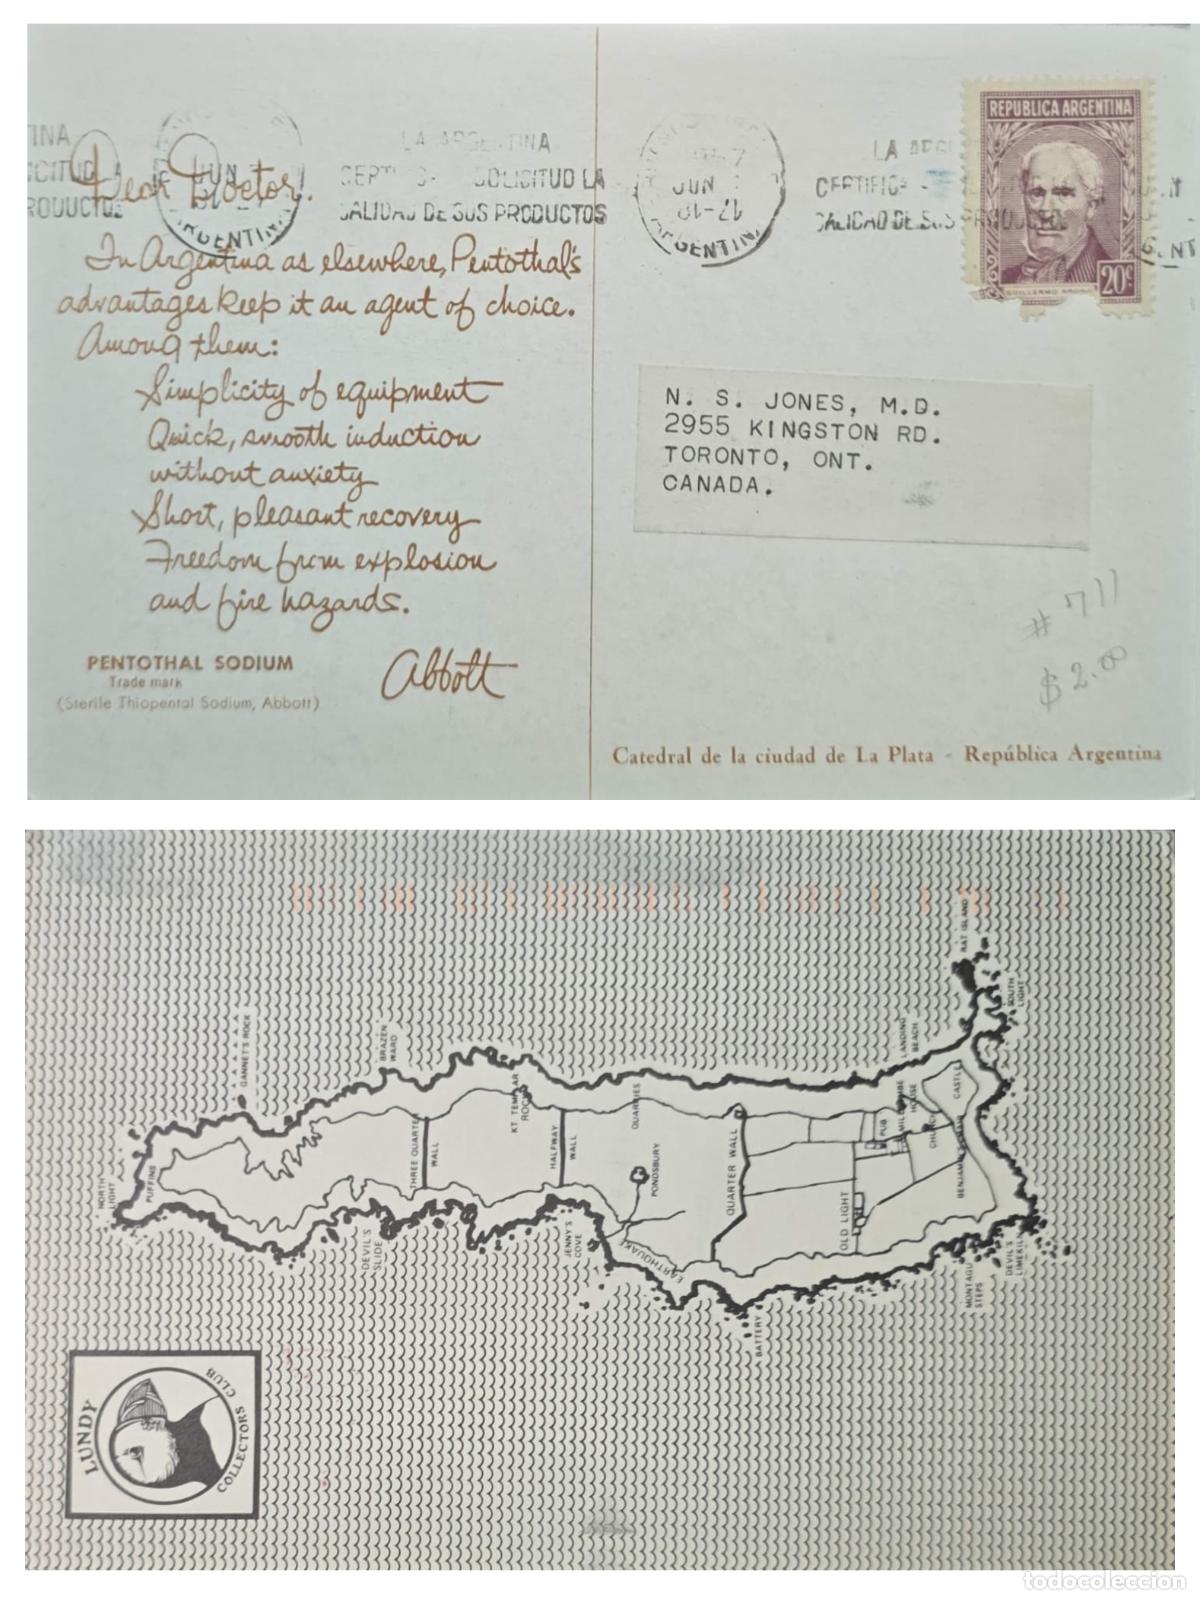 LA ARGENTINA
SOLICITUD LA
CALIDAD DE SUS PRODUCTOS
JUN
17-18
ARGENTINA
REPUBLICA ARGENTINA
GUILLERMO BROWN
20c
Dear Doctor.
In Argentina as elsewhere, Pentothal's
advantages keep it an agent of choice.
Among them:
Simplicity of equipment
Quick, smooth induction
without anxiety
Short, pleasant recovery
Freedom from explosion
and fire hazards.
PENTOTHAL SODIUM
Trade mark
(Sterile Thiopental Sodium, Abbott)
Abbott
N. S. JONES, M.D.
2955 KINGSTON RD.
TORONTO, ONT.
CANADA.
# 711
$ 2.00
Catedral de la ciudad de La Plata - República Argentina
RAT ISLAND
SOUTH LIGHT
GANNET'S ROCK
BRAZEN WARD
LANDING BEACH
KT TEMPLAR ROCK
QUARRIES
MILLCOMBE HOUSE
CASTLE
PUB
CHURCH
THREE QUARTER WALL
HALFWAY WALL
PONDSBURY
QUARTER WALL
NORTH LIGHT
PUFFINS
DEVIL'S SLIDE
JENNY'S COVE
EARTHQUAKE
OLD LIGHT
BATTERY
MONTAGU STEPS
DEVIL'S LIMEKILN
LUNDY
COLLECTORS CLUB
todocoleccion